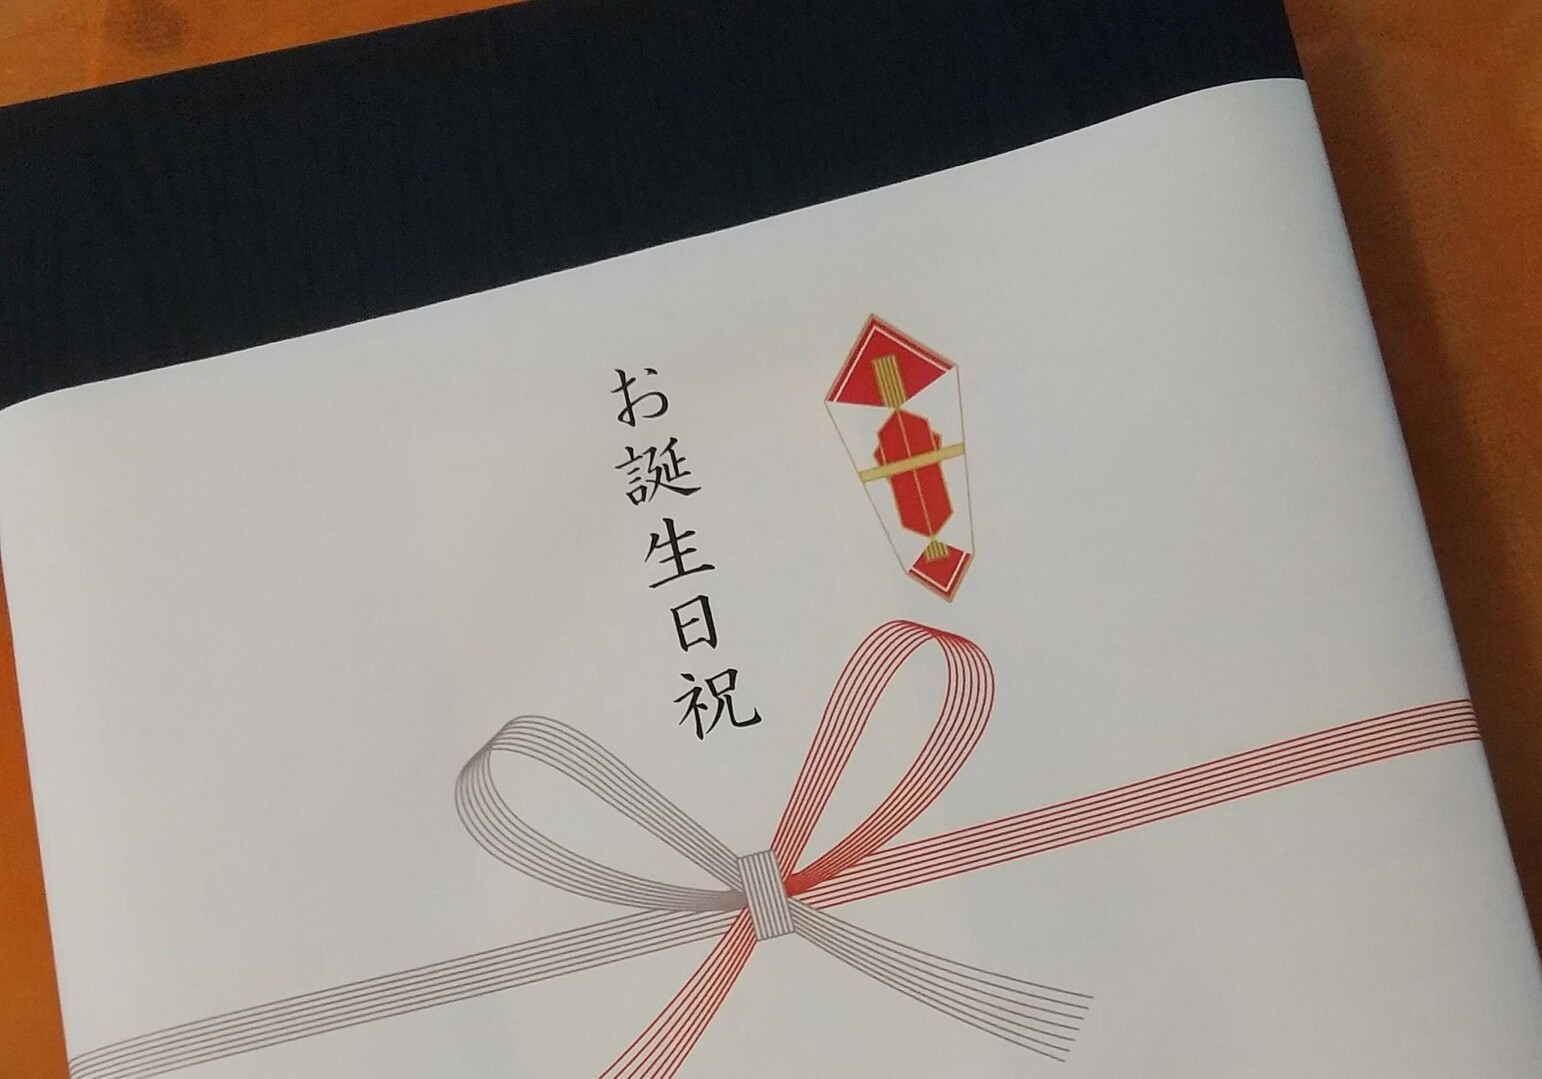 お誕生日祝